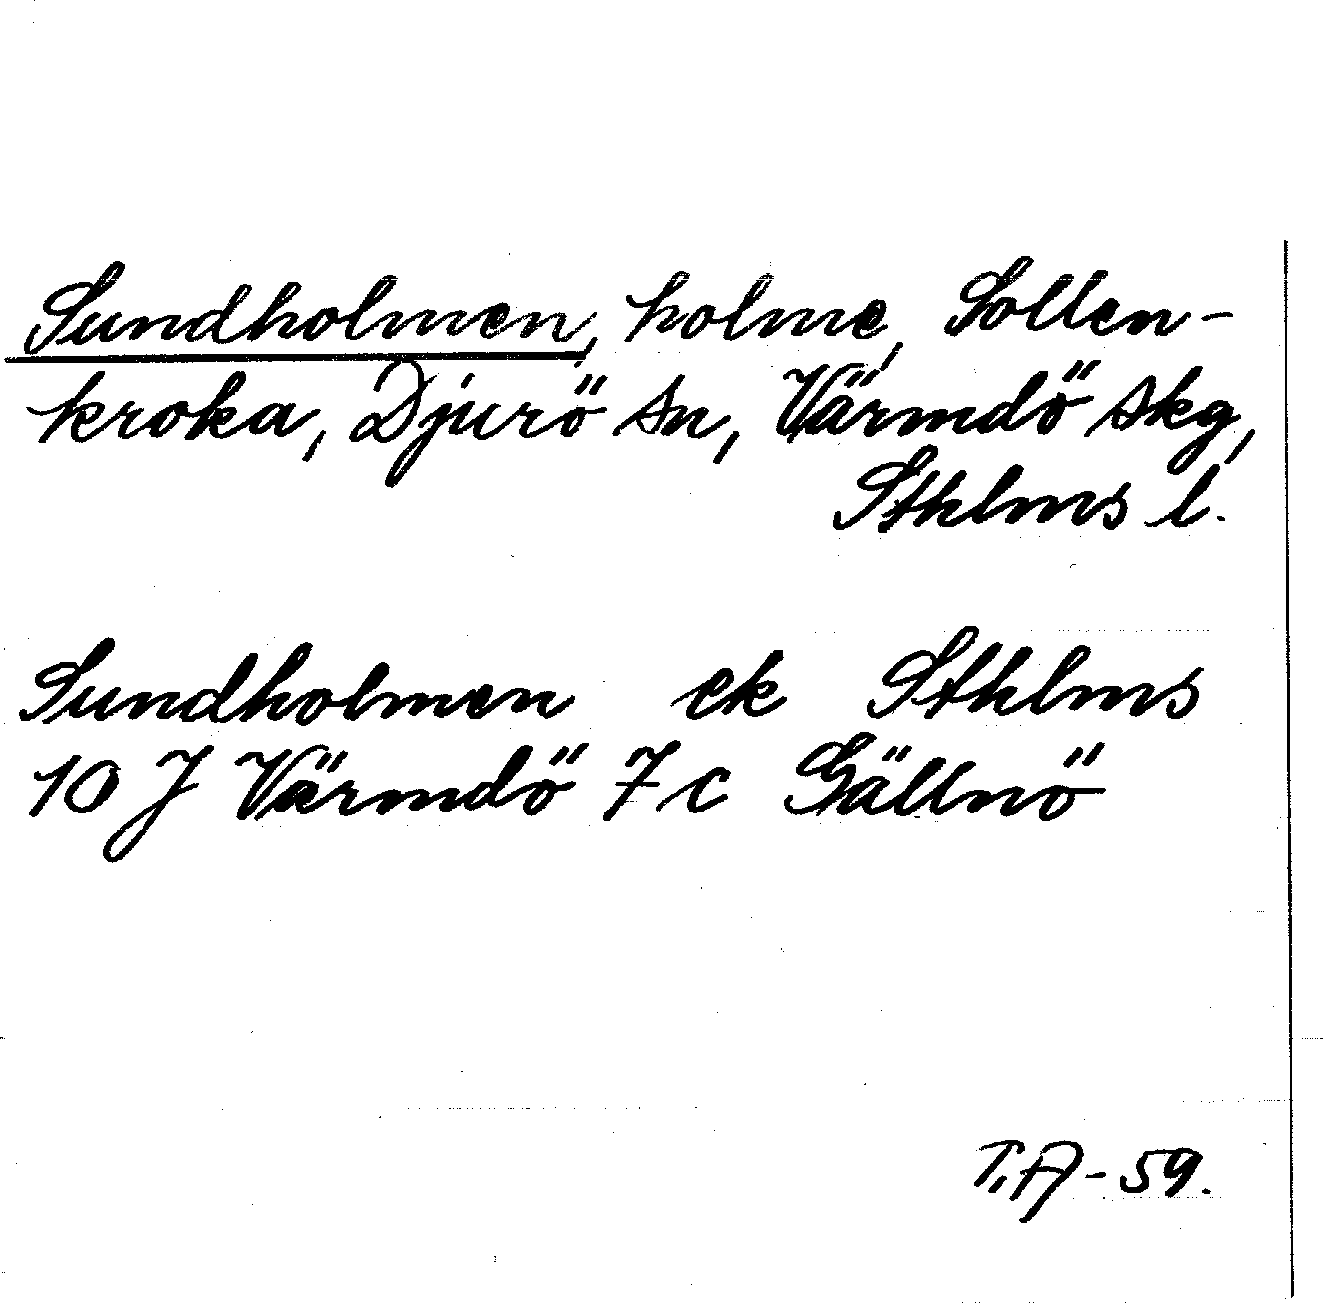 Sundholmen, holme, Sollen-
kroka, Djurö sn, Värmdö skg,
Sthlms l.
Sundholmen ek Sthlms
10 J Värmdö 7c Gällnö
T.A-59.